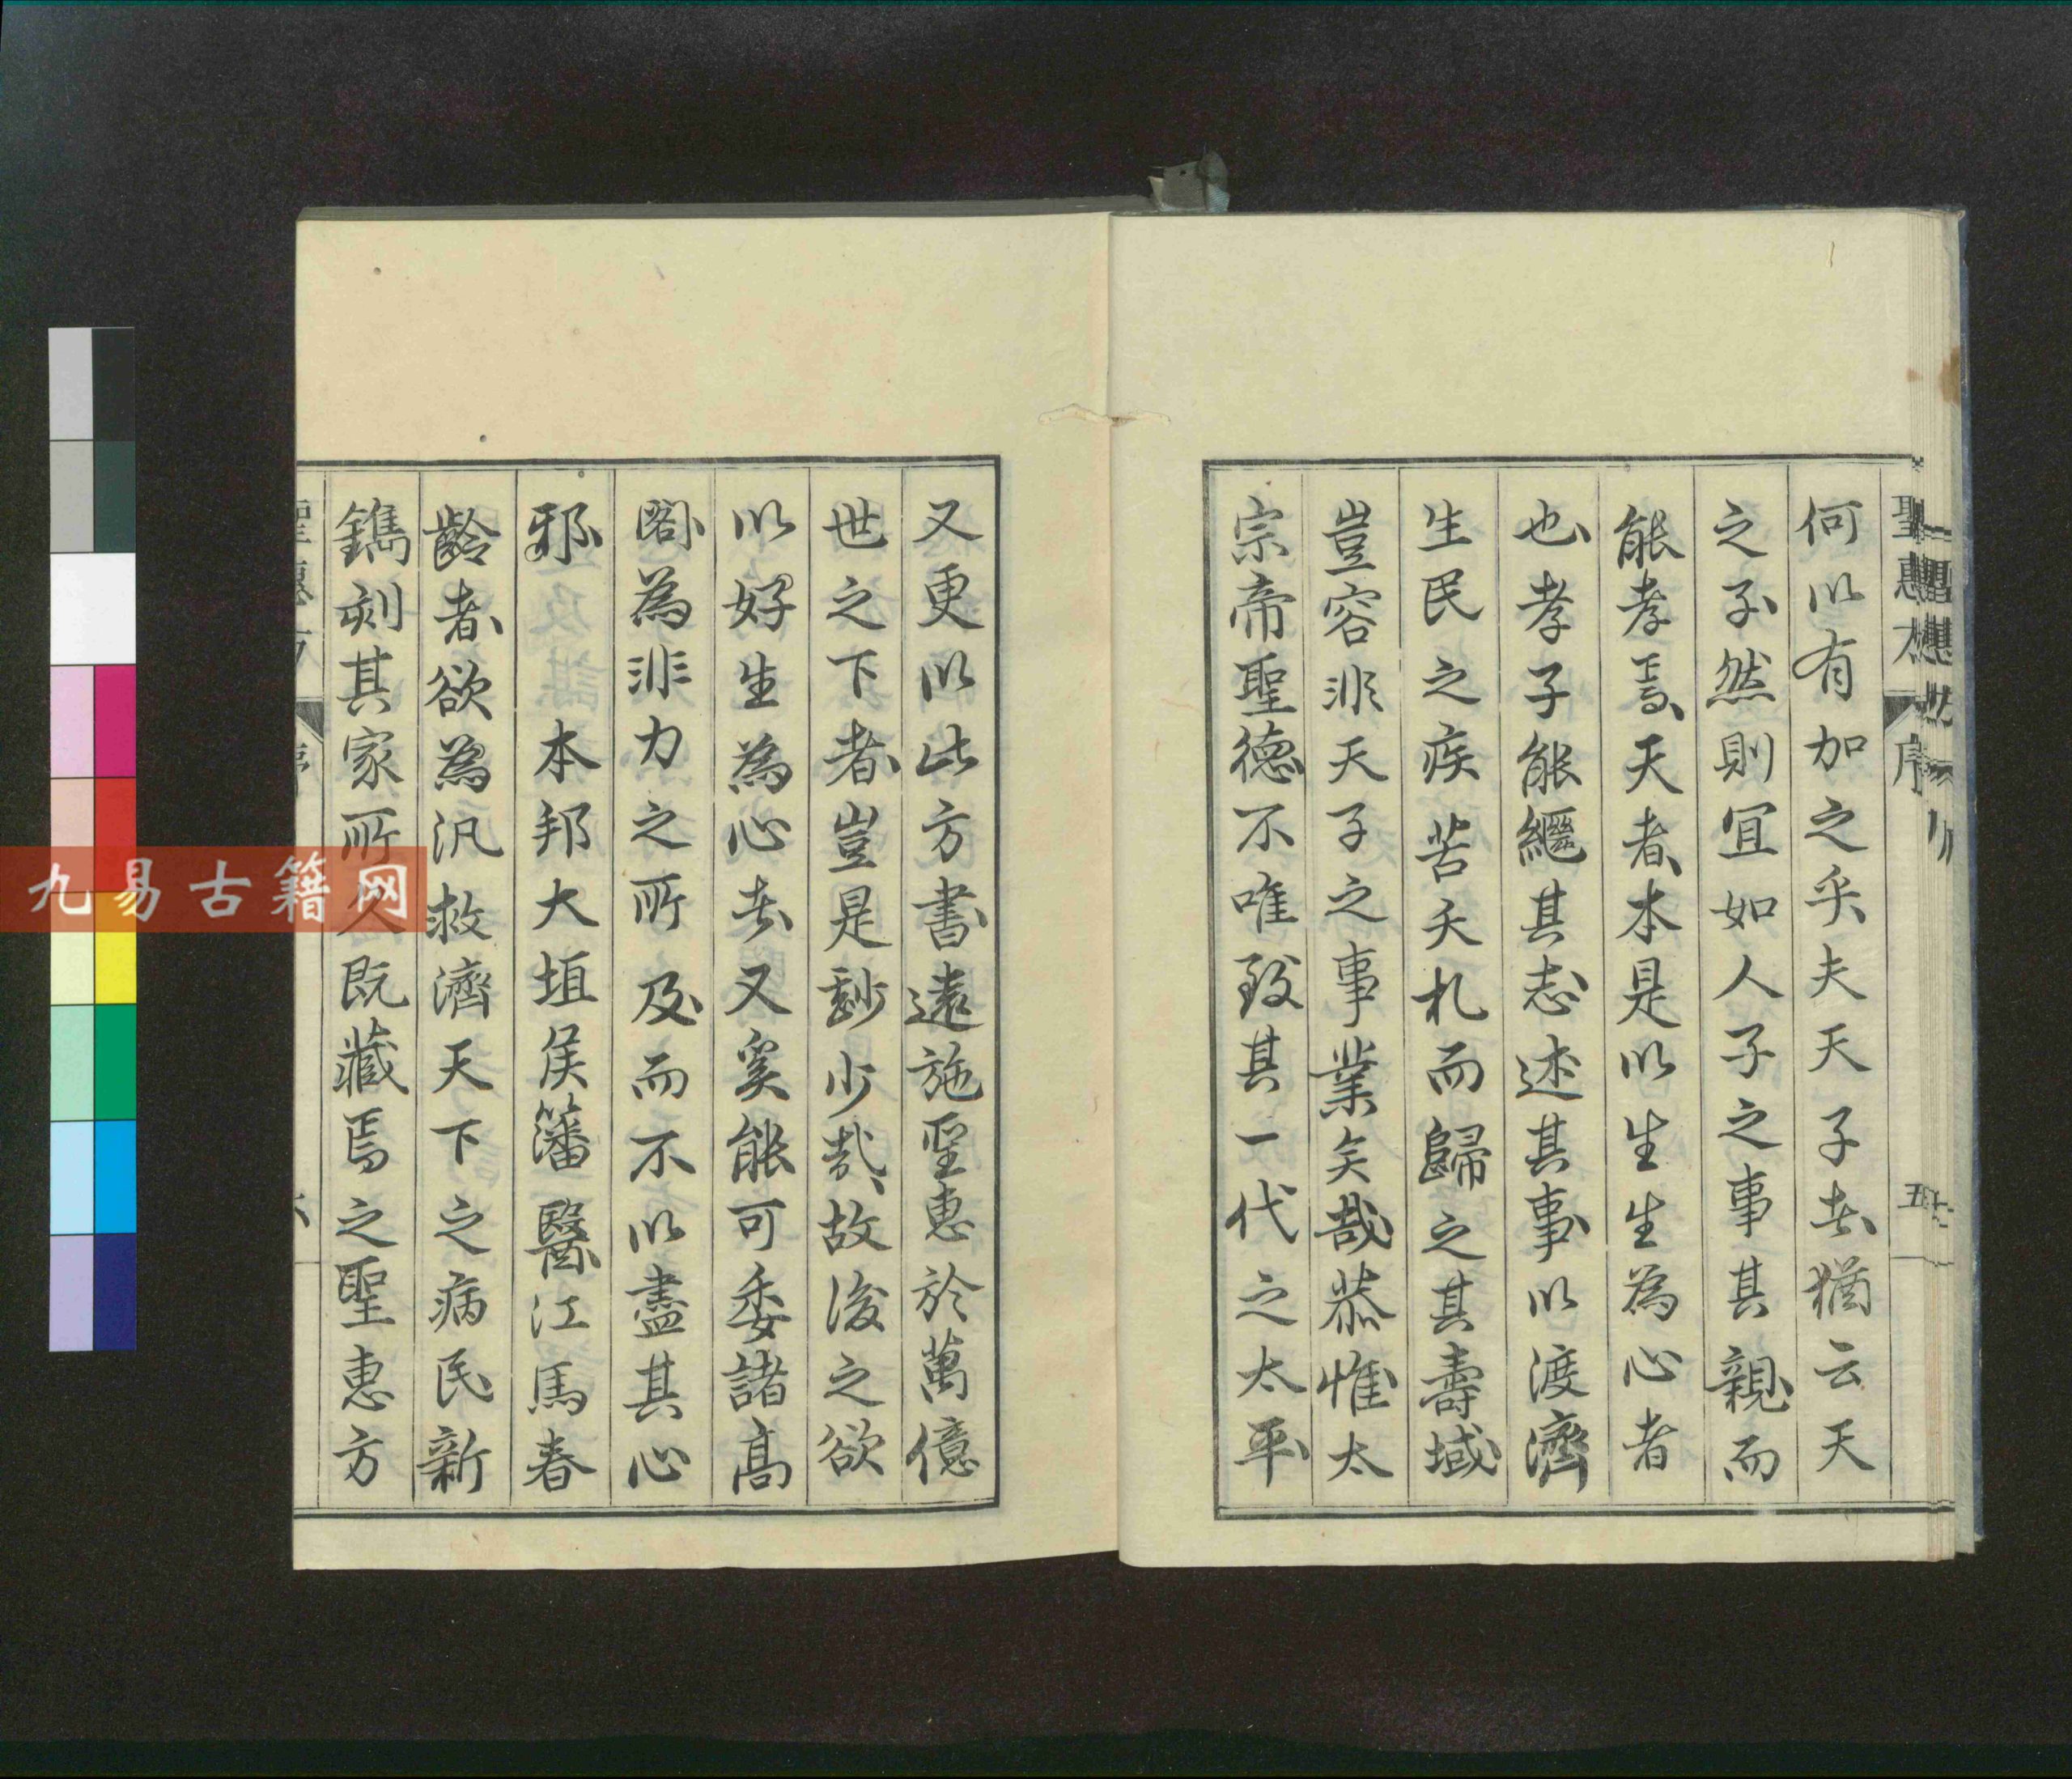 聖惠方 序 五
何以有加之乎夫天子者猶云天
之子然則宜如人子之事其親而
能孝焉天者本是以生生為心者
也孝子能繼其志述其事以渡濟
生民之疾苦夭札而歸之其壽域
豈容非天子之事業矣哉恭惟太
宗帝聖德不唯致其一代之太平
又更以此方書遠施聖惠於萬億
世之下者豈是尠少哉故後之欲
以好生為心者又奚能可委諸高
閣為非力之所及而不以盡其心
邪 本邦大垣侯籓醫江馬春
齡者欲為汎救濟天下之病民新
鐫刻其家所人既藏焉之聖惠方
九易古籍网